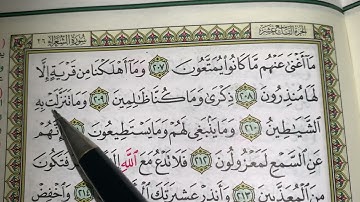 الجزء التاسع عشر سورة الشعراء ٢٦
مَآ أَغْنَىٰ عَنْهُم مَّا كَانُوا۟ يُمَتَّعُونَ ٢٠٧ وَمَآ أَهْلَكْنَا مِن قَرْيَةٍ إِلَّا
لَهَا مُنذِرُونَ ٢٠٨ ذِكْرَىٰ وَمَا كُنَّا ظَـٰلِمِينَ ٢٠٩ وَمَا تَنَزَّلَتْ بِهِ
ٱلشَّيَـٰطِينُ ٢١٠ وَمَا يَنۢبَغِى لَهُمْ وَمَا يَسْتَطِيعُونَ إِنَّهُمْ
عَنِ ٱلسَّمْعِ لَمَعْزُولُونَ ٢١٢ فَلَا تَدْعُ مَعَ ٱللَّهِ فَتَكُونَ
مِنَ ٱلْمُعَذَّبِينَ ٢١٣ وَأَنذِرْ عَشِيرَتَكَ ٢١٤ وَٱخْفِضْ